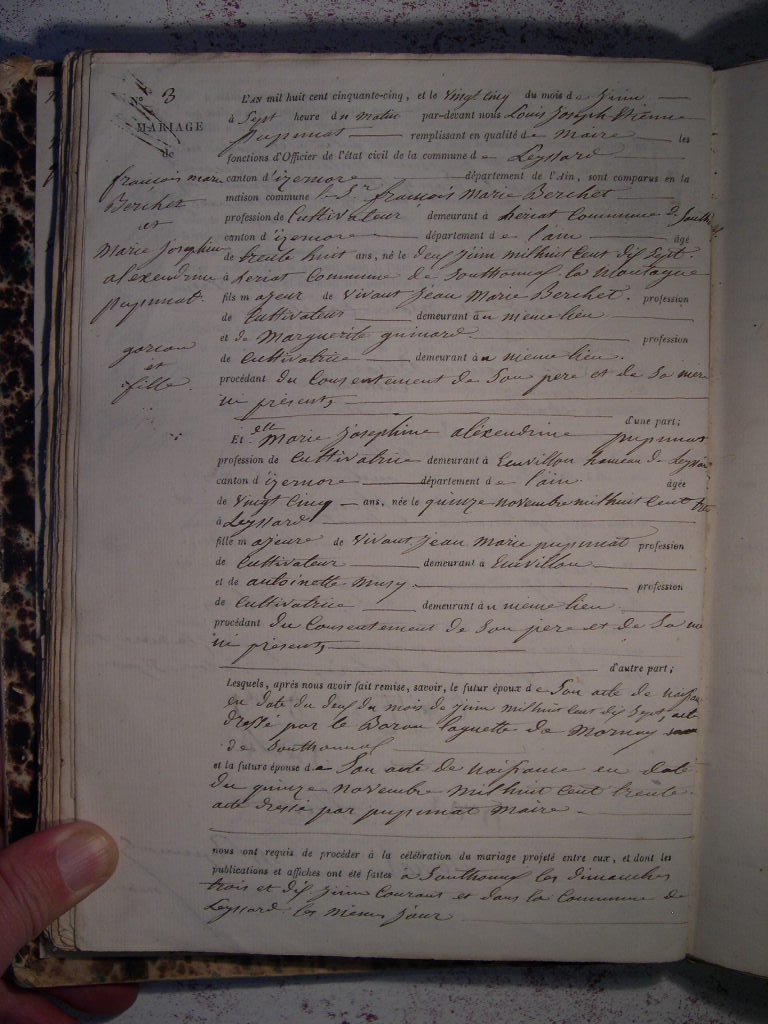 N.º 3
MARIAGE
de
francois marie
Berchet
et
Marie Josephine
aléxendrine
pupunat.
garcon
et
fille.
L'AN mil huit cent cinquante-cinq, et le vingt cinq du mois de juin
à Sept heure du matin par-devant nous Louis Joseph Etienne
pupunat remplissant en qualité de maire les
fonctions d'Officier de l'état civil de la commune de Leyssard
canton d'izernore département de l'Ain, sont comparus en la
maison commune le Sr francois Marie Berchet
profession de Cultivateur demeurant à heriat Commune de
canton d'izernore département de l'ain âgé
de trente huit ans, né le deux juin mil huit Cent dix Sept.
à heriat Commune de Southonnax la montagne
fils majeur de vivant jean Marie Berchet. profession
de Cultivateur demeurant au même lieu
et de Marguerite guinard profession
de Cultivatrice demeurant au même lieu.
procédant du Consentement de Son pere et de Sa mere
ici présents
d'une part;
Et elle Marie josephine aléxendrine pupunat
profession de Cultivatrice demeurant à hameau de Leyssard
canton d'izernore département de l'ain. âgée
de vingt Cinq ans, née le quinze novembre mil huit Cent
à Leyssard
fille majeure de vivant jean marie pupunat profession
de Cultivateur demeurant à
et de antoinette profession
de Cultivatrice demeurant au même lieu
procédant du Consentement de Son pere et de Sa
ici présents
d'autre part;
Lesquels, après nous avoir fait remise, savoir, le futur époux de Son acte de
en date du deux du mois de juin mil huit Cent dix Sept,
dressé par le Baron laguette de Mornay
de Southonnax
et la future épouse de Son acte de naissance en date
du quinze novembre mil huit Cent trente
acte dressé par pupunat maire
nous ont requis de procéder à la célébration du mariage projeté entre eux, et dont les
publications et affiches ont été faites à Southonnax les dimanches
trois et dix juin Courant et dans la Commune de
Leyssard les mêmes jour